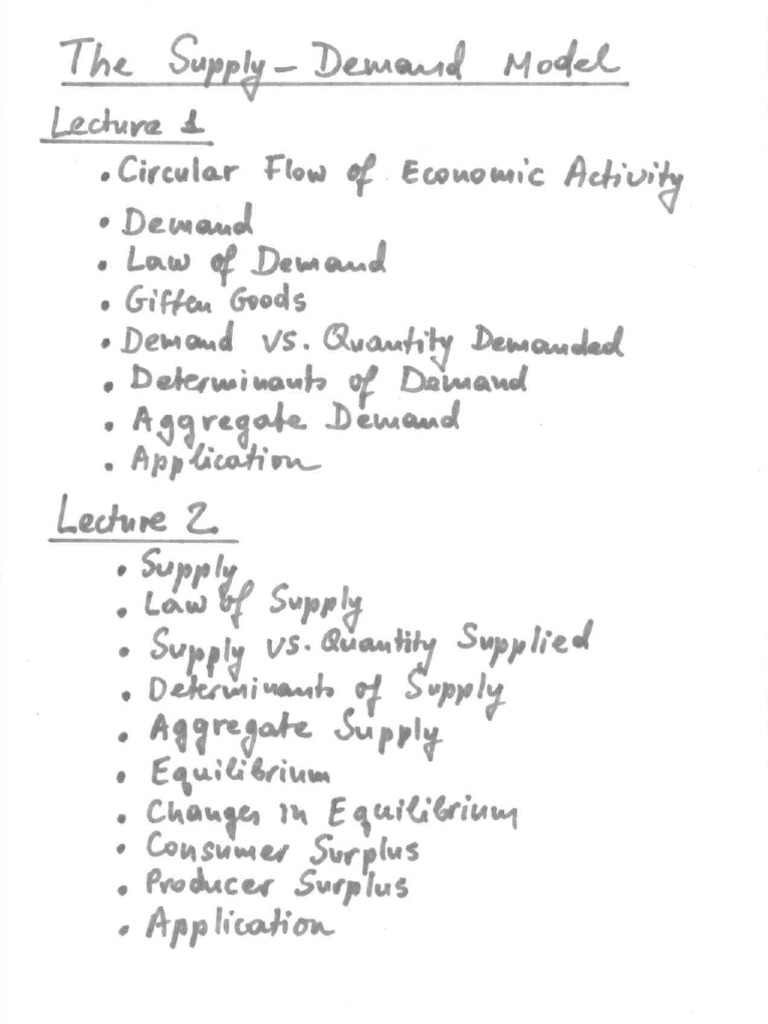 The Supply - Demand Model
Lecture 1
• Circular Flow of Economic Activity
• Demand
• Law of Demand
• Giffen Goods
• Demand vs. Quantity Demanded
• Determinants of Demand
• Aggregate Demand
• Application
Lecture 2
• Supply
• Law of Supply
• Supply vs. Quantity Supplied
• Determinants of Supply
• Aggregate Supply
• Equilibrium
• Changes in Equilibrium
• Consumer Surplus
• Producer Surplus
• Application